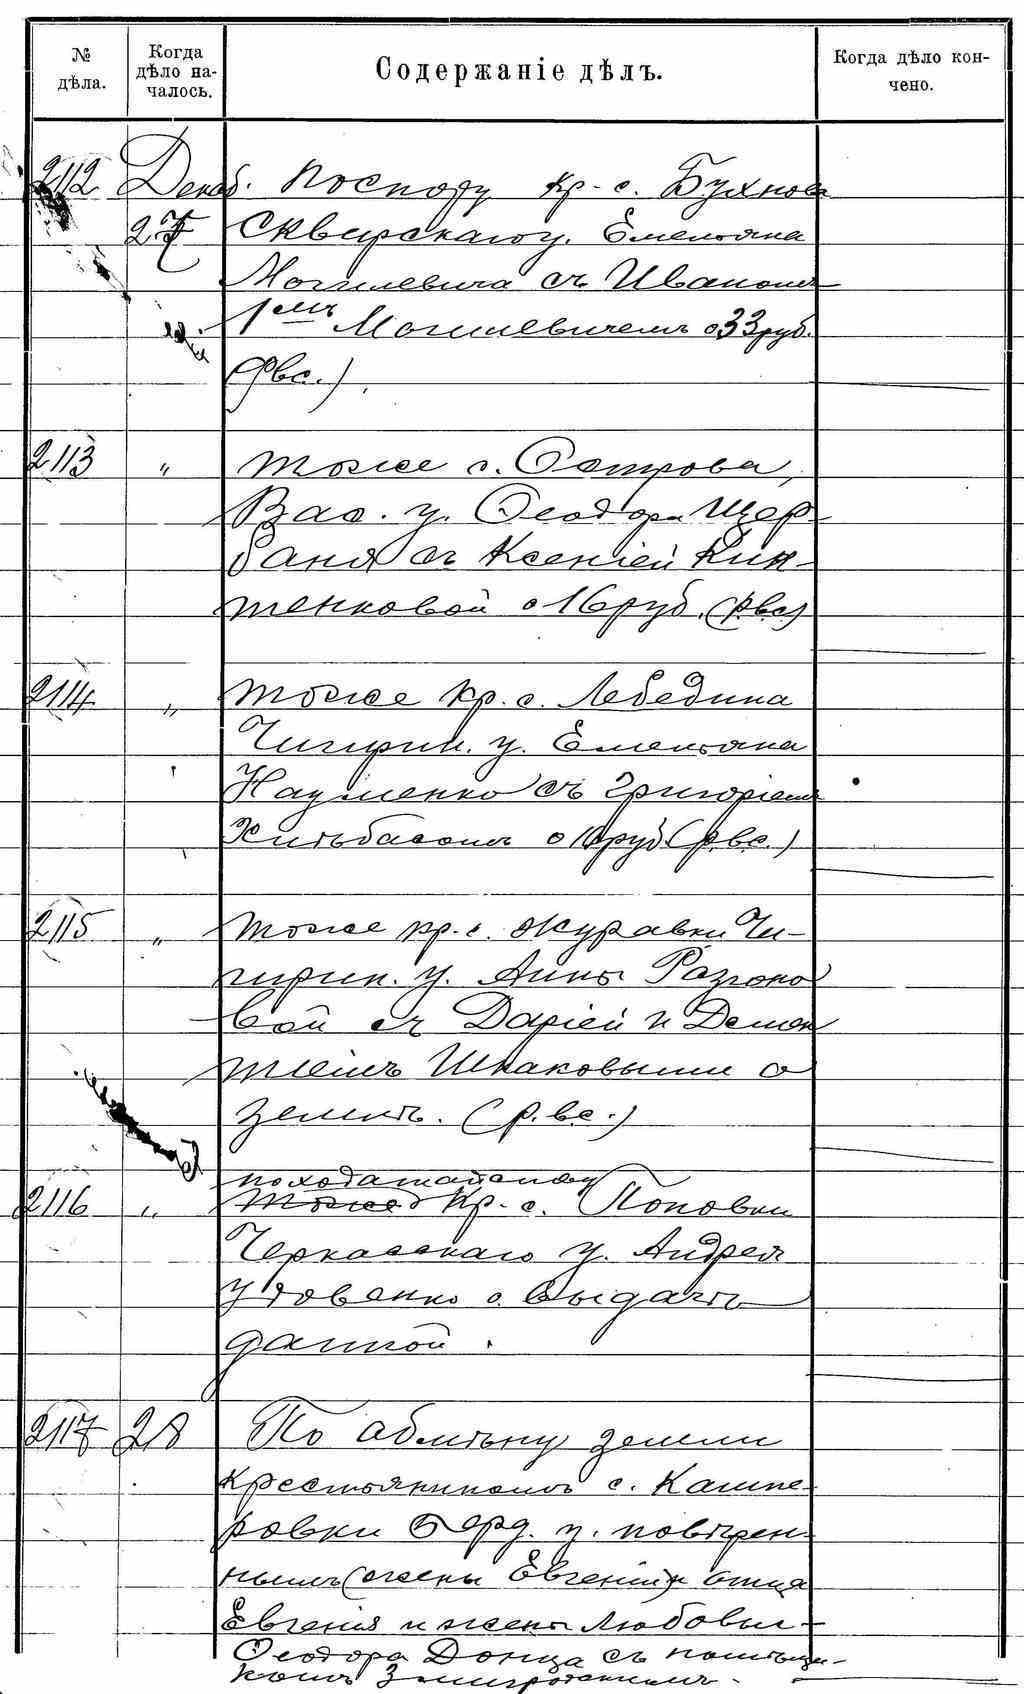 № дѣла.
Когда дѣло на-
чалось.
Содержаніе дѣлъ.
Когда дѣло кон-
чено.
2112 Декаб. По спору кр-с. Бухнова
27 Сквирскаго у. Емельяна
Могилевича съ Иваномъ
1мъ Могилевичемъ о 33 руб.
(рвс.).
2113 " тоже с. Острова,
Вас. у. Ѳеодора Щер-
баня съ Ксеніей Кик-
тенковой о 16 руб. (рвс)
2114 " тоже кр. с. Лебедина
Чигирин. у. Емельяна
Науменко съ Григоріемъ
Хитьбасомъ о руб. (р.вс.)
2115 " тоже кр. с. Журавки Чи-
гирин. у. Анны Разгоно
вой съ Даріей и Демен
тіемъ Шпаковыми о
землѣ. (р.вс.)
походатайству
2116 " тоже Кр-с. Поповки
Черкасскаго у. Андрея
Удовенко о выдачѣ
данной.
2117 28 По обмѣну земли
крестьяниномъ с. Кашпе-
ровки Берд. у. повѣрен-
нымъ (жены Евгеніи) отца
Евгенія и жены Любовью
Ѳеодора Донца съ помѣщи-
комъ Змигродскимъ.